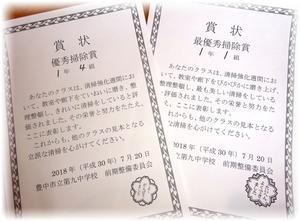 賞状
優秀掃除賞
1年 4組
あなたのクラスは、清掃強化週間にお
いて、教室や廊下をていねいに磨き、整
理整頓し、きれいに清掃をしていると評
価されました。その栄誉と努力をたたえ
ここに表彰します。
これからも、他のクラスの見本となる
立派な清掃を心がけてください。
2018年（平成30年）7月20日
豊中市立第九中学校 前期整備委員会
賞状
最優秀掃除賞
1年 1組
あなたのクラスは、清掃強化週間にお
いて、教室や廊下をぴかぴかに磨き上げ、
整理整頓し、最も美しい清掃をしていると
評価されました。その栄誉と努力をたた
え、ここに表彰します。
これからも、他のクラスの見本となる
な清掃を心がけてください。
2018年（平成30年）7月20日
立第九中学校 前期整備委員会